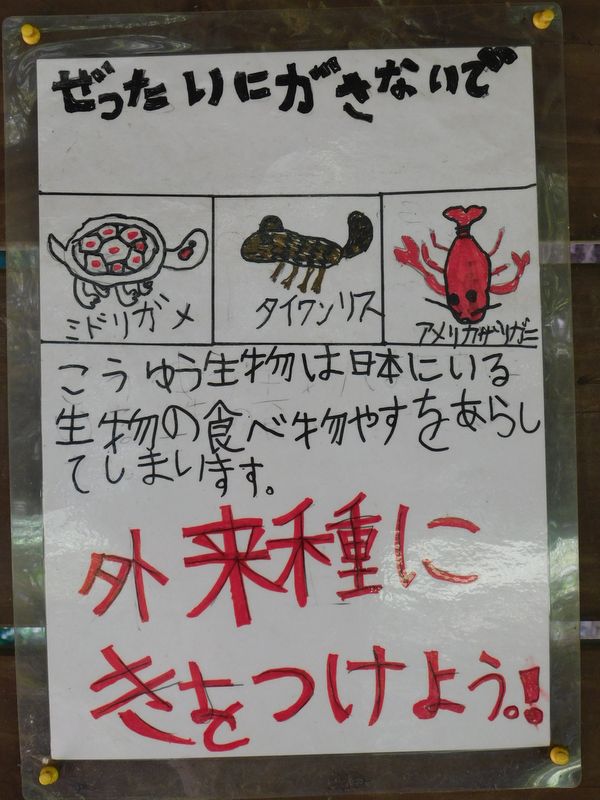 ぜったいにがさないで
ミドリガメ
タイワンリス
アメリカザリガニ
こうゆう生物は日本にいる
生物の食べ物やすをあらし
てしまいます。
外来種に
きをつけよう。!